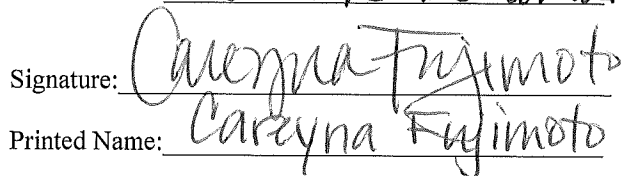 Signature: Careyna Fujimoto
Printed Name: Careyna Fujimoto